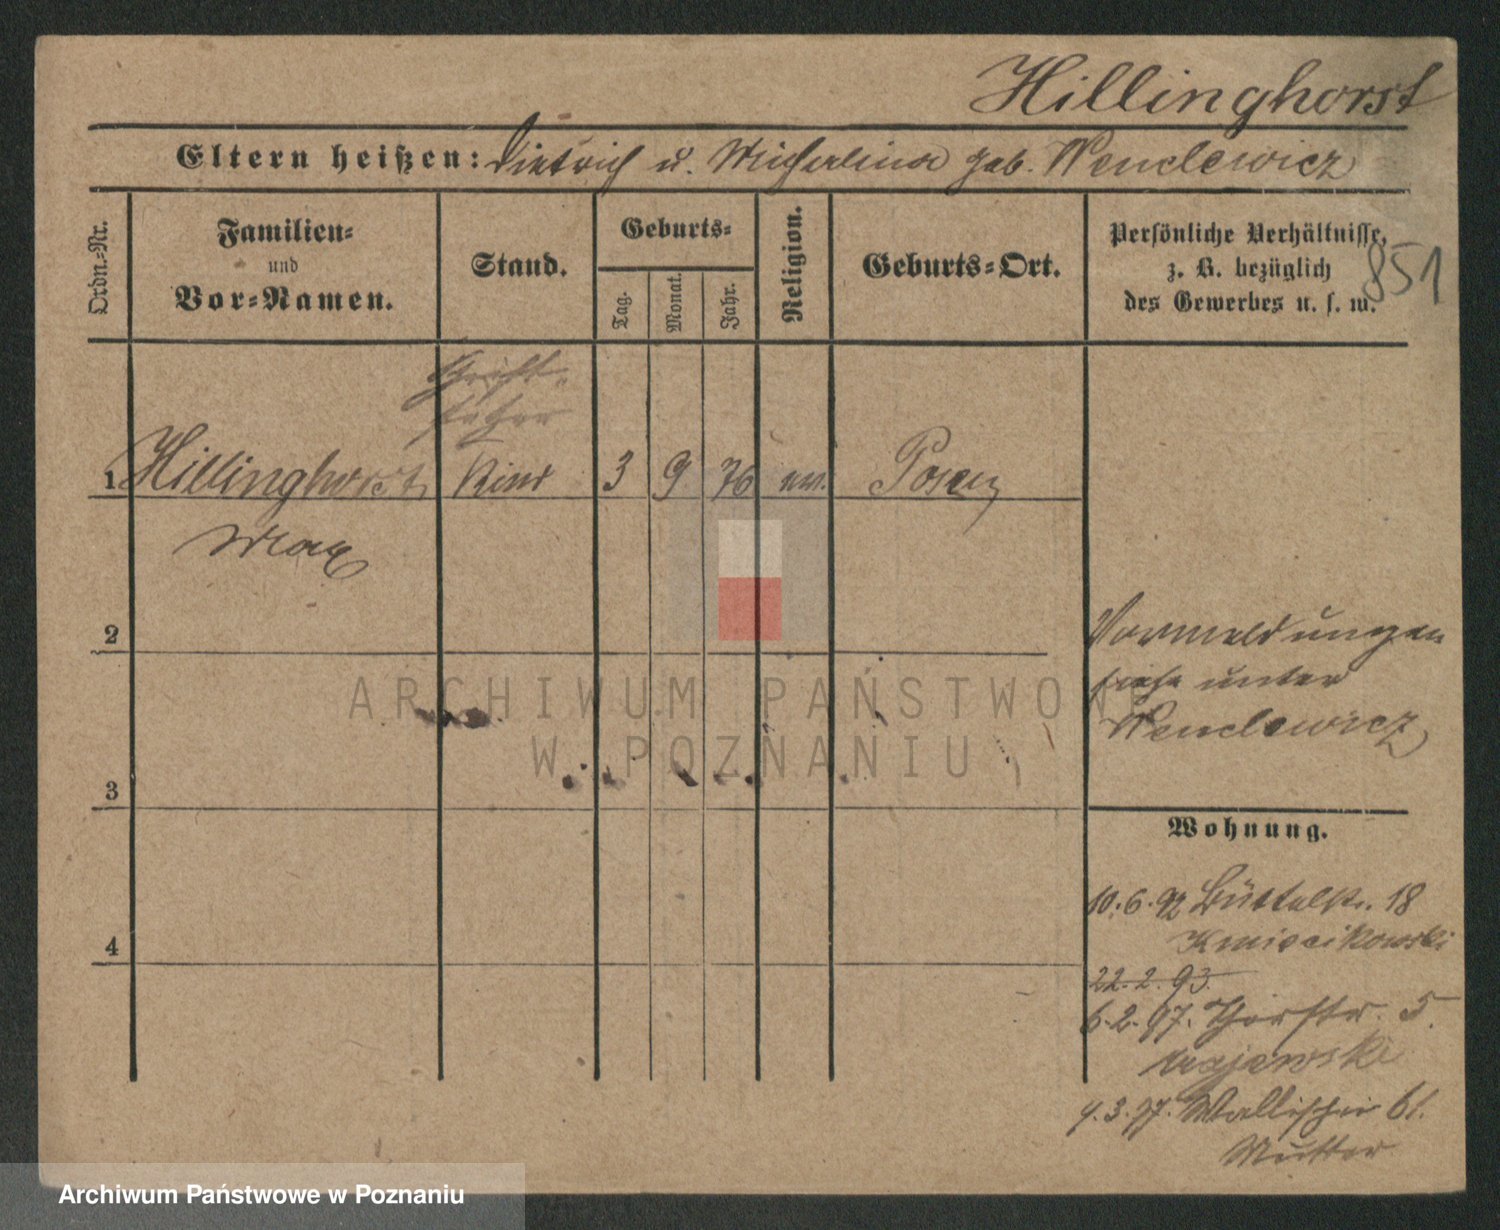 Hillinghorst
Eltern heißen: Dietrich u. Michalina geb. Wenclewicz
Ordn.-Nr.
Familien-
und
Vor-Namen.
Stand.
Geburts-
Tag.
Monat.
Jahr.
Religion.
Geburts-Ort.
Persönliche Verhältnisse,
z. B. bezüglich
des Gewerbes u. s. w.
851
Schrift-
setzer
1 Hillinghorst Kind 3 9 76 ev. Posen
Max
2
3
4
Vormeldungen
siehe unter
Wenclewicz
Wohnung.
10.6.92 Büttelstr. 18
Kmiecikowski
22.2.93.
6.2.97. Thorstr. 5.
Majewski
9.3.97. Wallischei 61.
Mutter
ARCHIWUM PAŃSTWOWE
W POZNANIU
Archiwum Państwowe w Poznaniu